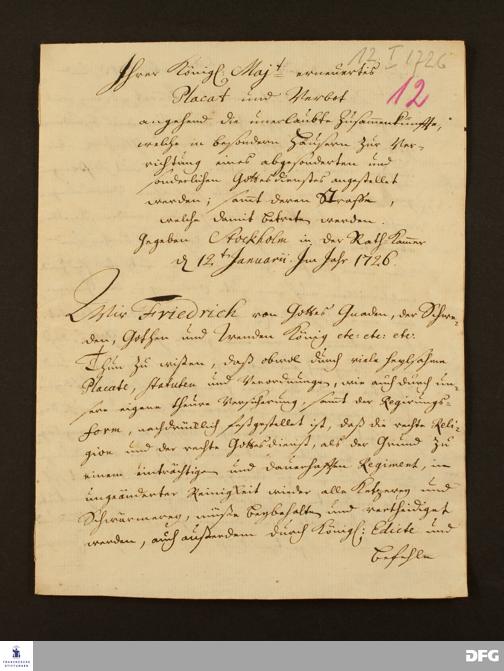 12. I 1726
12
Ihrer Königl: Majtt: erneuertes
Placat und Verbot
angehend die unerlaubte Zusammenkünffte,
welche in besondern Häusern zur Ver-
richtung eines abgesonderten und
sonderlichen Gottesdienstes angestellet
werden; samt deren Straffe,
welche damit betreten werden.
Gegeben Stockholm in der Rath Kammer
d 12.t Januarii. Im Jahr 1726.
Wir Friedrich von Gottes Gnaden, der Schwe-
den, Gothen und Wenden König etc: etc: etc.
Thun zu wissen, daß obwol durch viele heylsahme
Placate, statuten und Verordnungen, wie auch durch un-
sere eigene theure Versicherung, samt der Regierungs-
form, nachdrücklich festgestellet ist, daß die rechte Reli-
gion und der rechte Gottesdienst, als der Grund zu
einem einträchtigen und dauerhafften Regiment, in
ungeänderter Reinigkeit wieder alle Ketzerey und
Schwärmerey, müsse beybehalten und vertheidiget
werden, auch außerdem durch Königl: Edicte und
Befehle
FRANCKESCHE
STIFTUNGEN
DFG